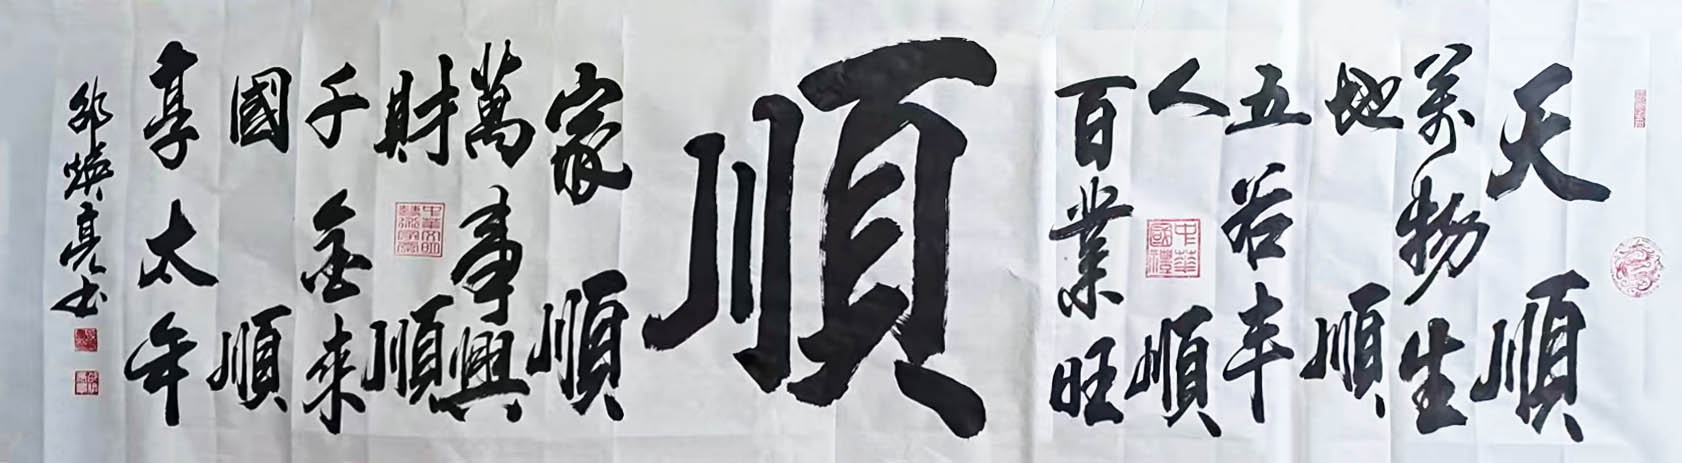 天順
萬物生
地順
五谷丰
人順
百業旺
順
家順
萬事興
財順
千金來
國順
享太年
邵煥亮书
中華國禮